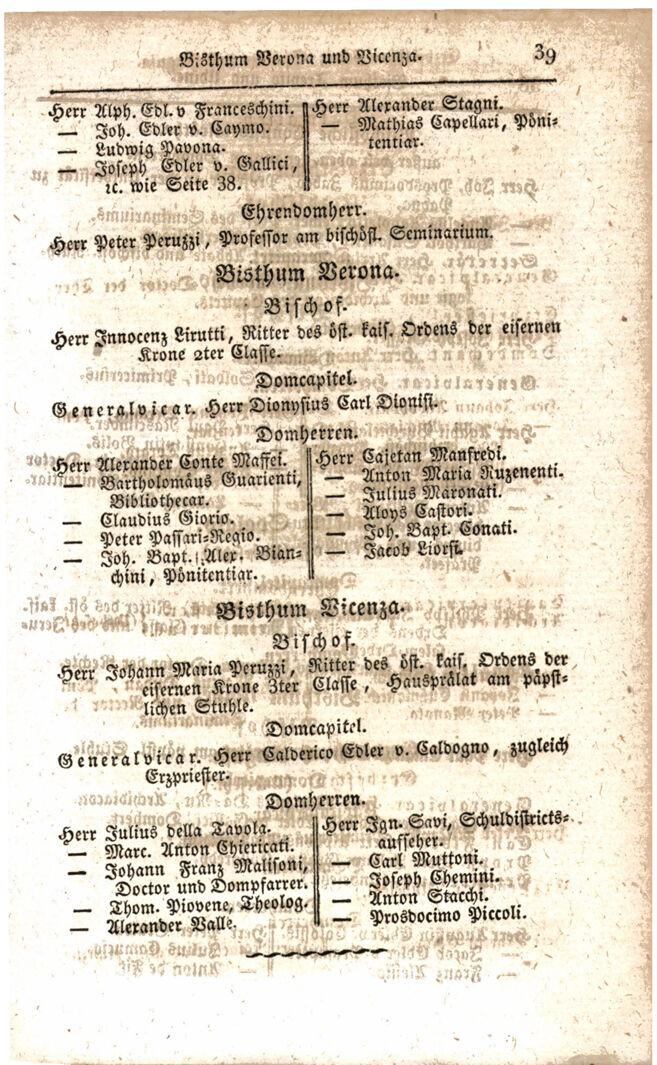 Bisthum Verona und Vicenza. 39
Herr Alph. Edl. v Franceschini.
— Joh. Edler v. Caymo.
— Ludwig Pavona.
— Joseph Edler v. Gallici,
ꝛc. wie Seite 38.
Herr Alexander Stagni.
— Mathias Capellari, Pöni-
tentiar.
Ehrendomherr.
Herr Peter Peruzzi, Professor am bischöfl. Seminarium.
Bisthum Verona.
Bischof.
Herr Innocenz Lirutti, Ritter des öst. kais. Ordens der eisernen
Krone 2ter Classe.
Domcapitel.
Generalvicar. Herr Dionysius Carl Dionisi.
Domherren.
Herr Alexander Conte Maffei.
— Bartholomäus Guarienti,
Bibliothecar.
— Claudius Giorio.
— Peter Passari-Regio.
— Joh. Bapt. Alex. Bian-
chini, Pönitentiar.
Herr Cajetan Manfredi.
— Anton Maria Ruzenenti.
— Julius Maronati.
— Aloys Castori.
— Joh. Bapt. Conati.
— Jacob Liorsi.
Bisthum Vicenza.
Bischof.
Herr Johann Maria Peruzzi, Ritter des öst. kais. Ordens der
eisernen Krone 3ter Classe, Hausprälat am päpst-
lichen Stuhle.
Domcapitel.
Generalvicar. Herr Calderico Edler v. Caldogno, zugleich
Erzpriester.
Domherren.
Herr Julius della Tavola.
— Marc. Anton Chiericati.
— Johann Franz Malisoni,
Doctor und Dompfarrer.
— Thom. Piovene, Theolog.
— Alexander Valle.
Herr Ign. Savi, Schuldistricts-
aufseher.
— Carl Muttoni.
— Joseph Chemini.
— Anton Stacchi.
— Prosdocimo Piccoli.